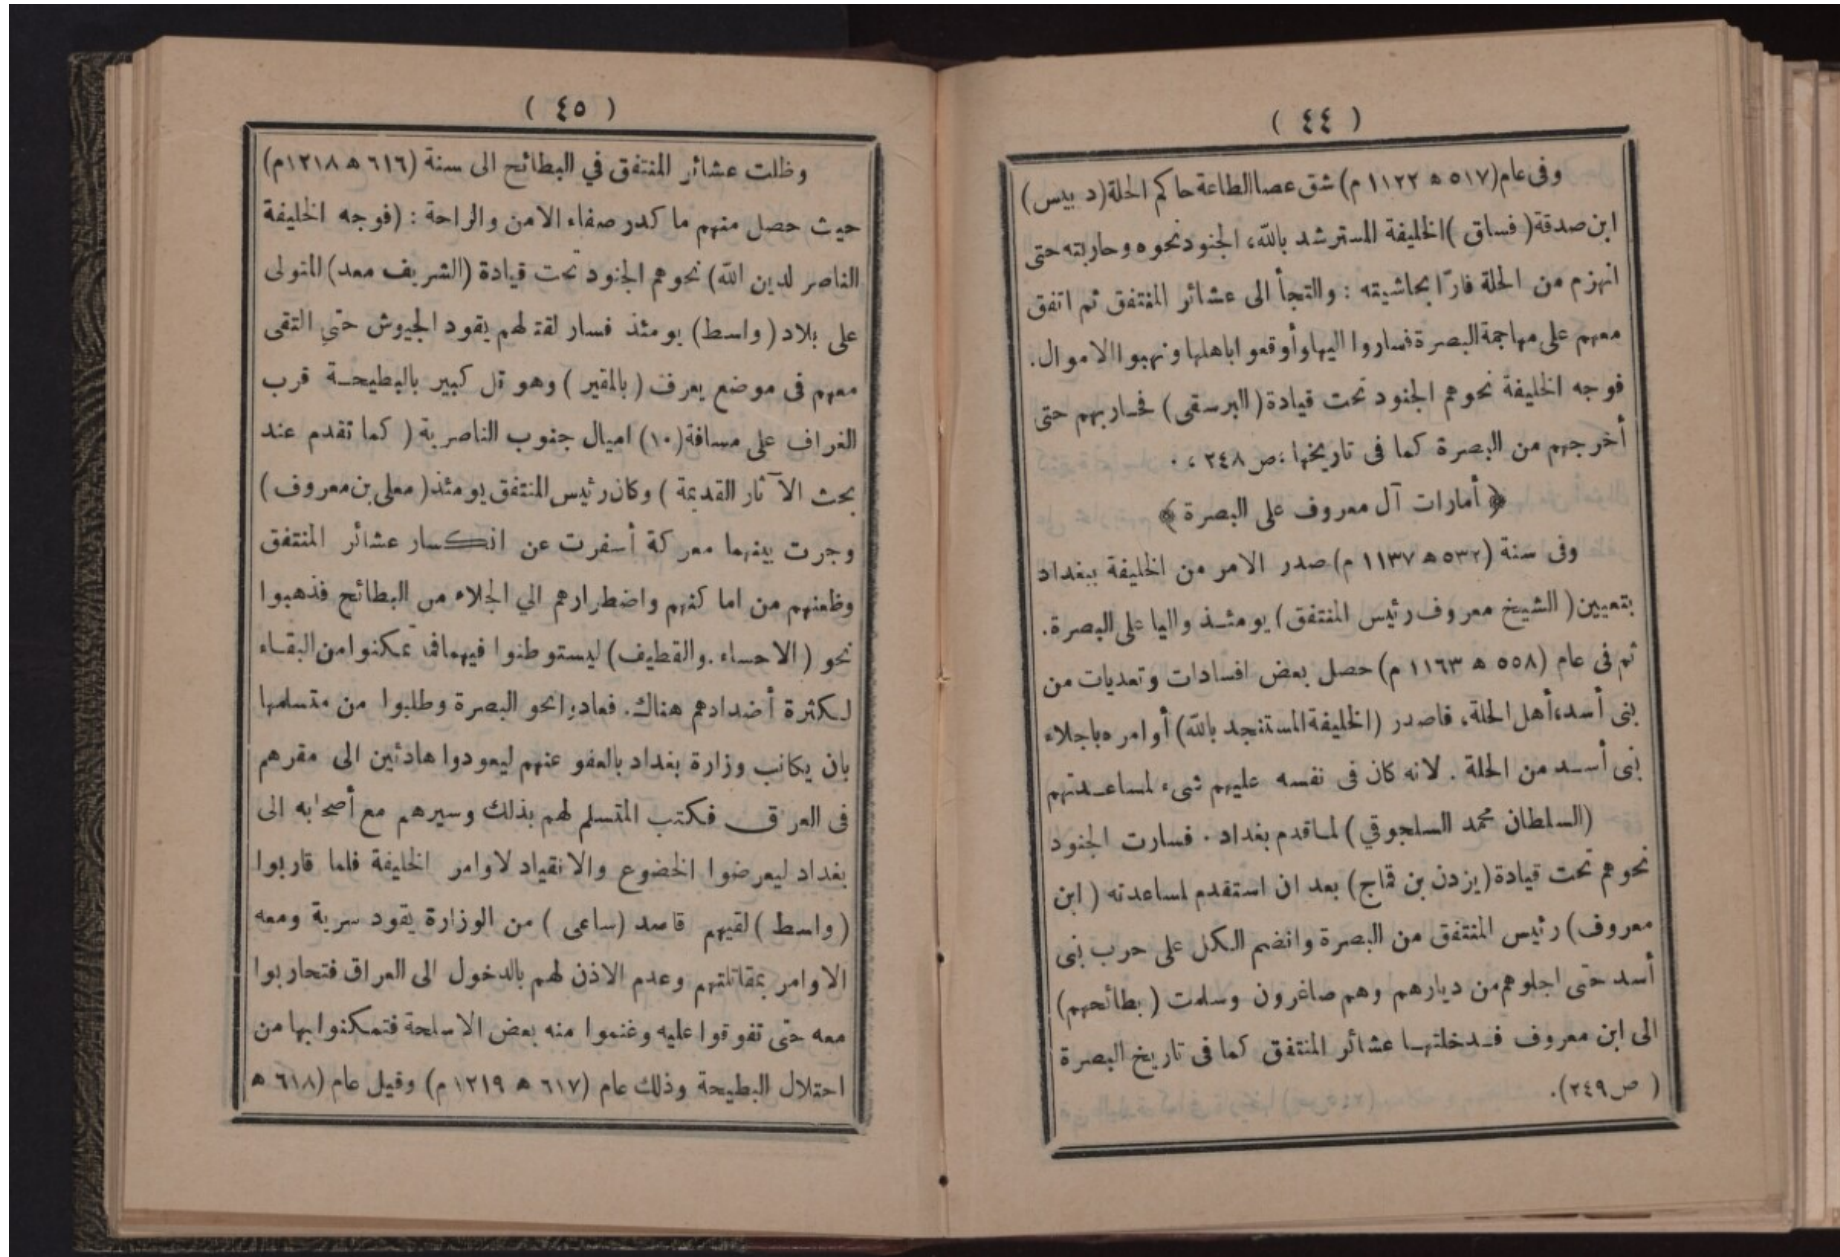 ( ٤٤ )
وفى عام (٥١٧ ه ١١٢٢ م) شق عصا الطاعة حاكم الحلة (دبيس)
ابن صدقة ( فساق ) الخليفة المسترشد بالله، الجنود نحوه وحاربته حتى
انهزم من الحلة فارّا بحاشيته : والتجأ الى عشائر المنتفق ثم اتفق
معهم على مهاجمة البصرة فساروا اليها وأوقعوا باهلها ونهبوا الاموال.
فوجه الخليفة نحوهم الجنود تحت قيادة ( البرسقى ) فحاربهم حتى
أخرجهم من البصرة كما فى تاريخها ،ص ٢٤٨ ، .
﴿ أمارات آل معروف على البصرة ﴾
وفى سنة (٥٣٢ ه ١١٣٧ م) صدر الامر من الخليفة ببغداد
بتعيين ( الشيخ معروف رئيس المنتفق ) يومئذ واليا على البصرة.
ثم فى عام (٥٥٨ ه ١١٦٣ م) حصل بعض افسادات وتعديات من
بنى أسد،أهل الحلة، فاصدر (الخليفة المستنجد بالله) أوامره باجلاء
بنى أسد من الحلة . لانه كان فى نفسه عليهم شىء لمساعدتهم
(السلطان محمد السلجوقي) لما قدم بغداد . فسارت الجنود
نحوهم تحت قيادة (يزدن بن قماج) بعد ان استقدم لمساعدته ( ابن
معروف) رئيس المنتفق من البصرة وانضم الكل على حرب بنى
أسد حتى اجلوهم من ديارهم وهم صاغرون وسلمت ( بطائحهم)
الى ابن معروف فدخلتها عشائر المنتفق كما فى تاريخ البصرة
( ص ٢٤٩).
( ٤٥ )
وظلت عشائر المنتفق في البطائح الى سنة (٦١٦ ه ١٢١٨م)
حيث حصل منهم ما كدر صفاء الامن والراحة : (فوجه الخليفة
الناصر لدين الله) نحوهم الجنود تحت قيادة (الشريف معد) المتولى
على بلاد ( واسط) يومئذ فسار لقتلهم يقود الجيوش حتي التقى
معهم فى موضع يعرف ( بالمقير ) وهو تل كبير بالبطيحة قرب
الغراف على مسافة (١٠) اميال جنوب الناصرية ( كما تقدم عند
بحث الآثار القديمة ) وكان رئيس المنتفق يومئذ ( معلى بن معروف )
وجرت بينهما معركة أسفرت عن انكسار عشائر المنتفق
وظعنهم من اما كنهم واضطرارهم الي الجلاء من البطائح فذهبوا
نحو ( الاحساء . والقطيف) ليستوطنوا فيهما فما تمكنوا من البقاء
لكثرة أضدادهم هناك. فعادوا نحو البصرة وطلبوا من متسلمها
بان يكاتب وزارة بغداد بالعفو عنهم ليعودوا هادئين الى مقرهم
فى العراق فكتب المتسلم لهم بذلك وسيرهم مع أصحابه الى
بغداد ليعرضوا الخضوع والانقياد لاوامر الخليفة فلما قاربوا
( واسط ) لقيهم قاصد (ساعى ) من الوزارة يقود سرية ومعه
الاوامر بمقاتلتهم وعدم الاذن لهم بالدخول الى العراق فتحاربوا
معه حتى تفوقوا عليه وغنموا منه بعض الاسلحة فتمكنوا بها من
احتلال البطيحة وذلك عام (٦١٧ ه ١٢١٩ م) وقيل عام (٦١٨ ه